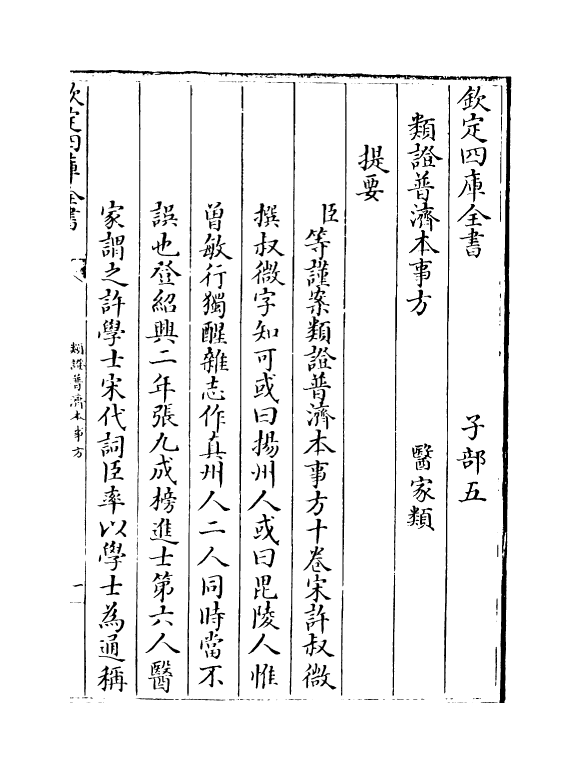 欽定四庫全書　子部五
類證普濟本事方　醫家類
提要
臣等謹案類證普濟本事方十卷宋許叔微
撰叔微字知可或曰揚州人或曰毘陵人惟
曾敏行獨醒雜志作真州人二人同時當不
誤也登紹興二年張九成榜進士第六人醫
家謂之許學士宋代詞臣率以學士為通稱
欽定四庫全書　類證普濟本事方　一